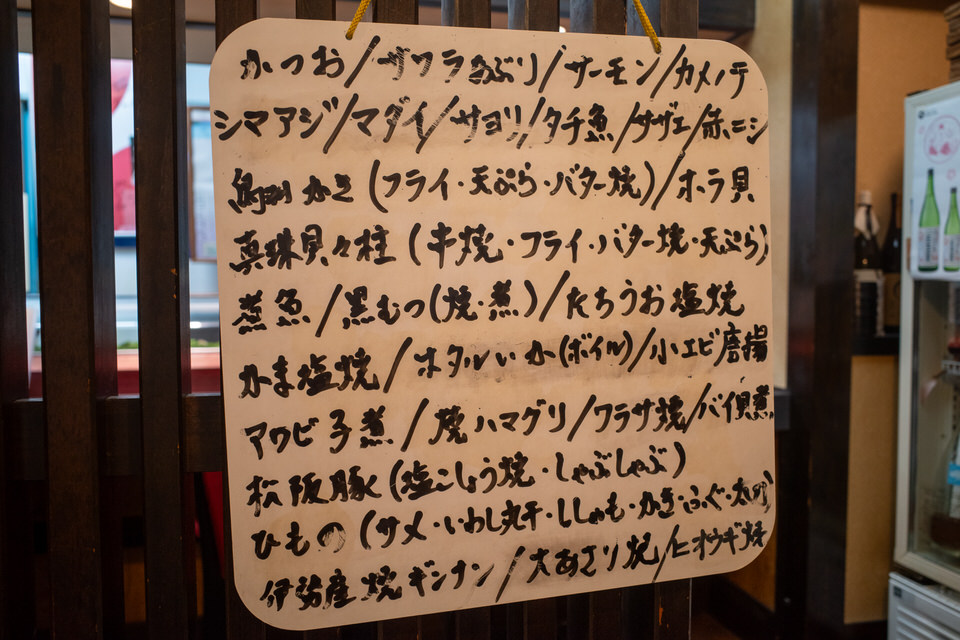 かつお/サワラあぶり/サーモン/カメノテ
シマアジ/マダイ/サヨリ/タチ魚/サザエ/赤ニシ
鳥羽かき(フライ・天ぷら・バター焼)/ホラ貝
真珠貝々柱(串焼・フライ・バター焼・天ぷら)
煮魚/黒むつ(焼・煮)/たちうお塩焼
かま塩焼/ホタルいか(ボイル)/小エビ唐揚
アワビ子煮/焼ハマグリ/ワラサ焼/バイ貝煮
松阪豚(塩こしょう焼・しゃぶしゃぶ)
ひもの(サメ・いわし丸干・ししゃも・かき・ふぐ・太刀)
伊勢産焼ギンナン/大あさり焼/ヒオウギ焼